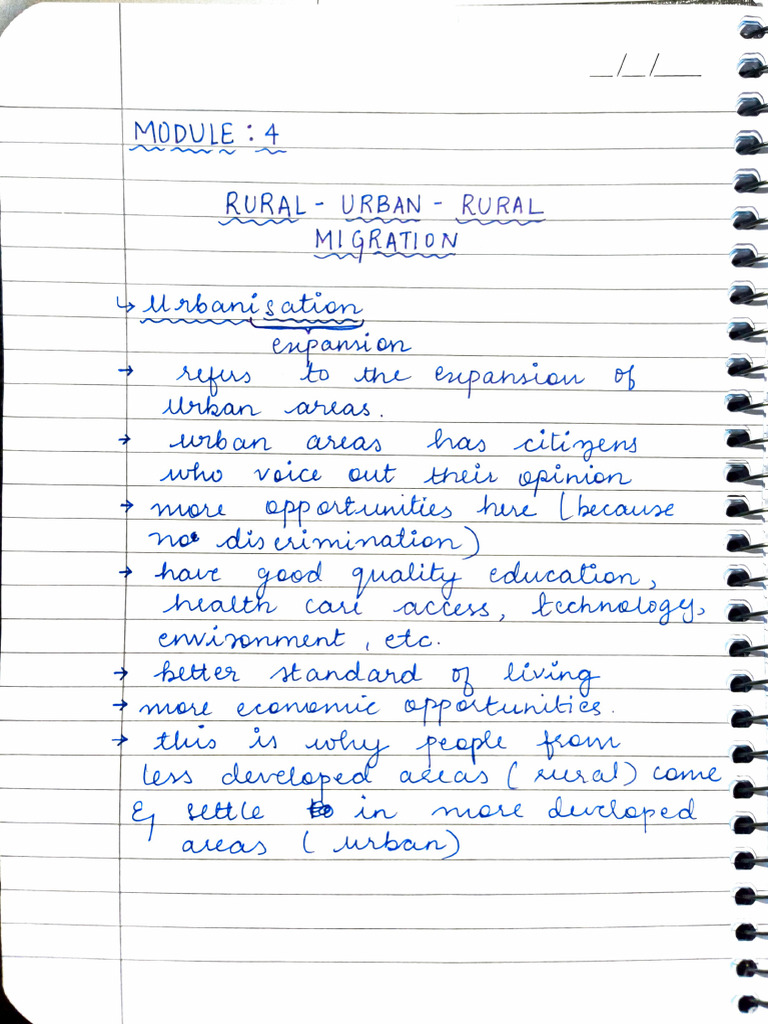 __/__/____
MODULE : 4
RURAL - URBAN - RURAL
MIGRATION
↳ Urbanisation
expansion
→ refers to the expansion of
urban areas.
→ urban areas has citizens
who voice out their opinion
→ more opportunities here (because
no discrimination)
→ have good quality education,
health care access, technology,
environment, etc.
→ better standard of living
→ more economic opportunities.
→ this is why people from
less developed areas (rural) come
& settle in more developed
areas (urban)